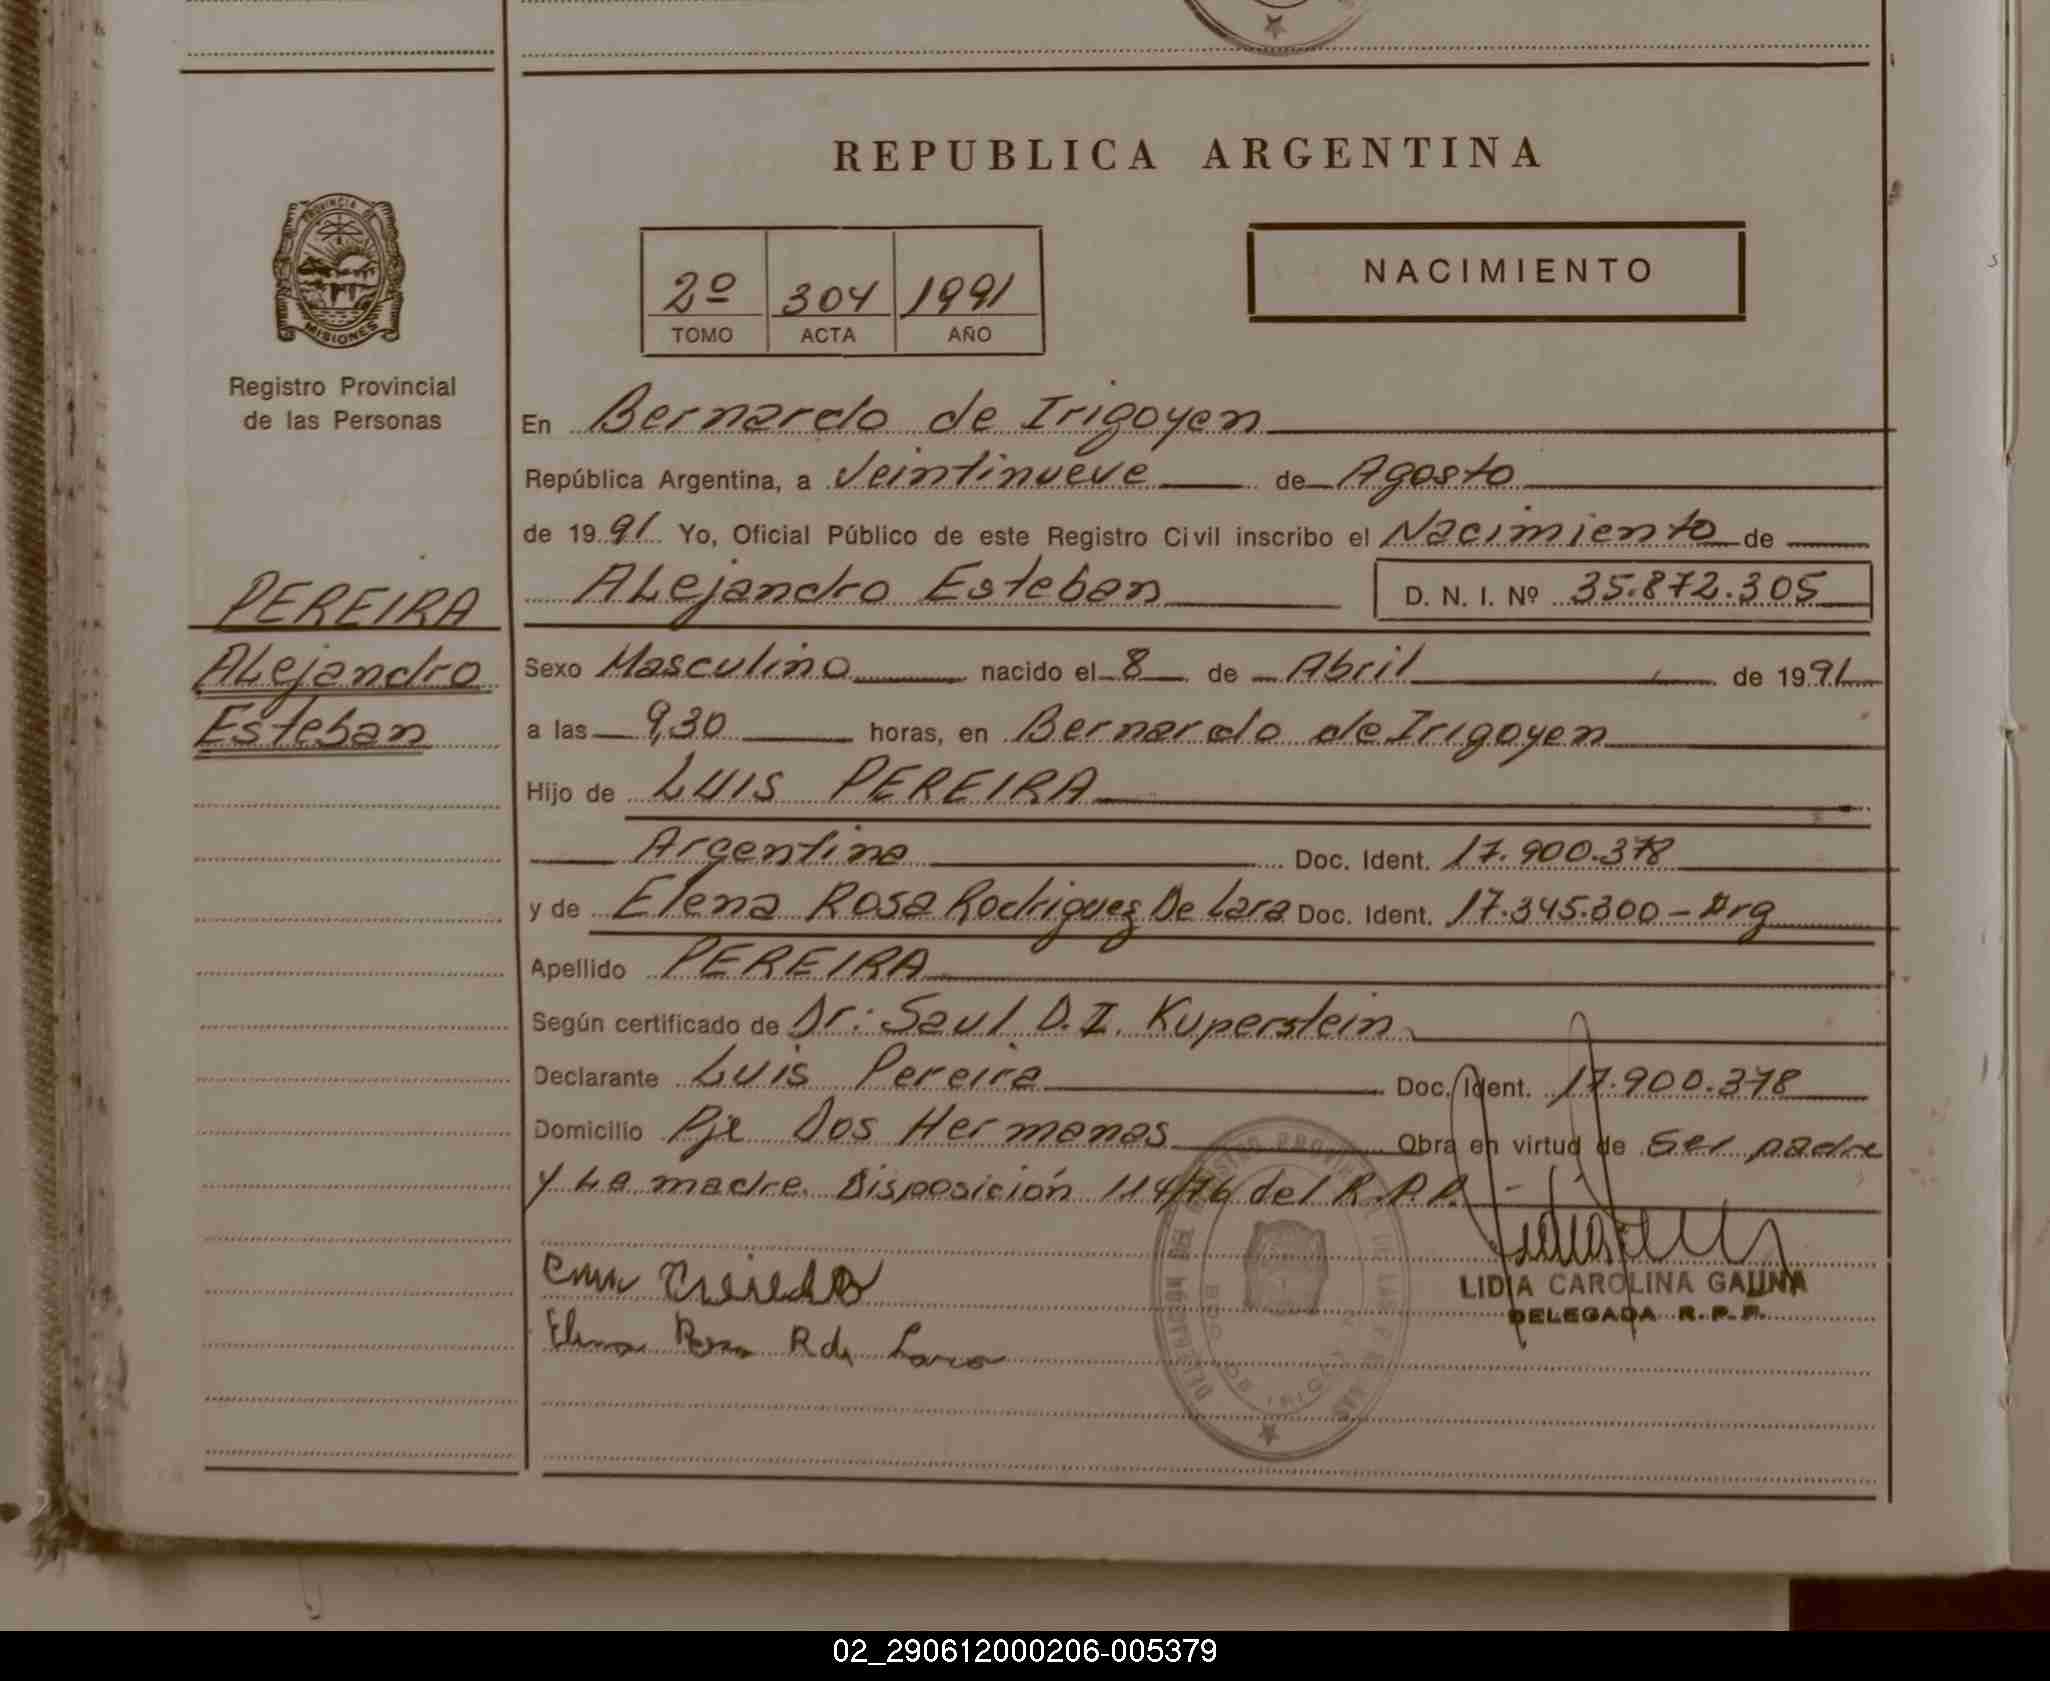 REPUBLICA ARGENTINA
PROVINCIA DE MISIONES
Registro Provincial
de las Personas
2º 304 1991
TOMO ACTA AÑO
NACIMIENTO
En Bernardo de Irigoyen
República Argentina, a Veintinueve de Agosto
de 1991 Yo, Oficial Público de este Registro Civil inscribo el Nacimiento de
ALejandro Esteban D. N. I. Nº 35.872.305
PEREIRA
ALejandro
Esteban
Sexo Masculino nacido el 8 de Abril de 1991
a las 9,30 horas, en Bernardo de Irigoyen
Hijo de LUIS PEREIRA
Argentina Doc. Ident. 17.900.378
y de Elena Rosa Rodriguez De Lara Doc. Ident. 17.345.300 - Arg
Apellido PEREIRA
Según certificado de Dr: Saul D.I. Kuperstein
Declarante Luis Pereira Doc. Ident. 17.900.378
Domicilio Pje Dos Hermanas Obra en virtud de Ser padre
y La madre. Disposición 114/76 del R.P.P. -
Elena Rosa R de Lara
LIDIA CAROLINA GAUNA
DELEGADA R. P. P.
02_290612000206-005379